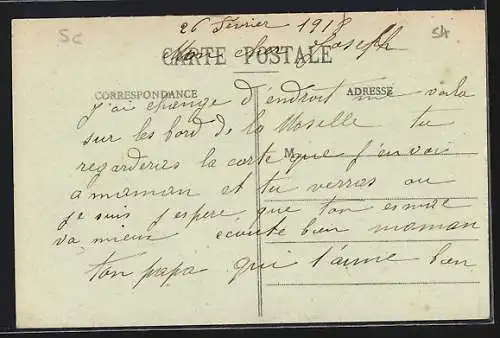 5c
54
26 Fevrier 1918
Mon cher Joseph
CARTE POSTALE
CORRESPONDANCE
ADRESSE
J'ai change d'endroit me voila
sur les bord de la Moselle tu
M
regarderas la carte que j'envoi
a maman et tu verras ou
je suis j'espere que ton
va mieux ecoute bien maman
ton papa qui t'aime bien